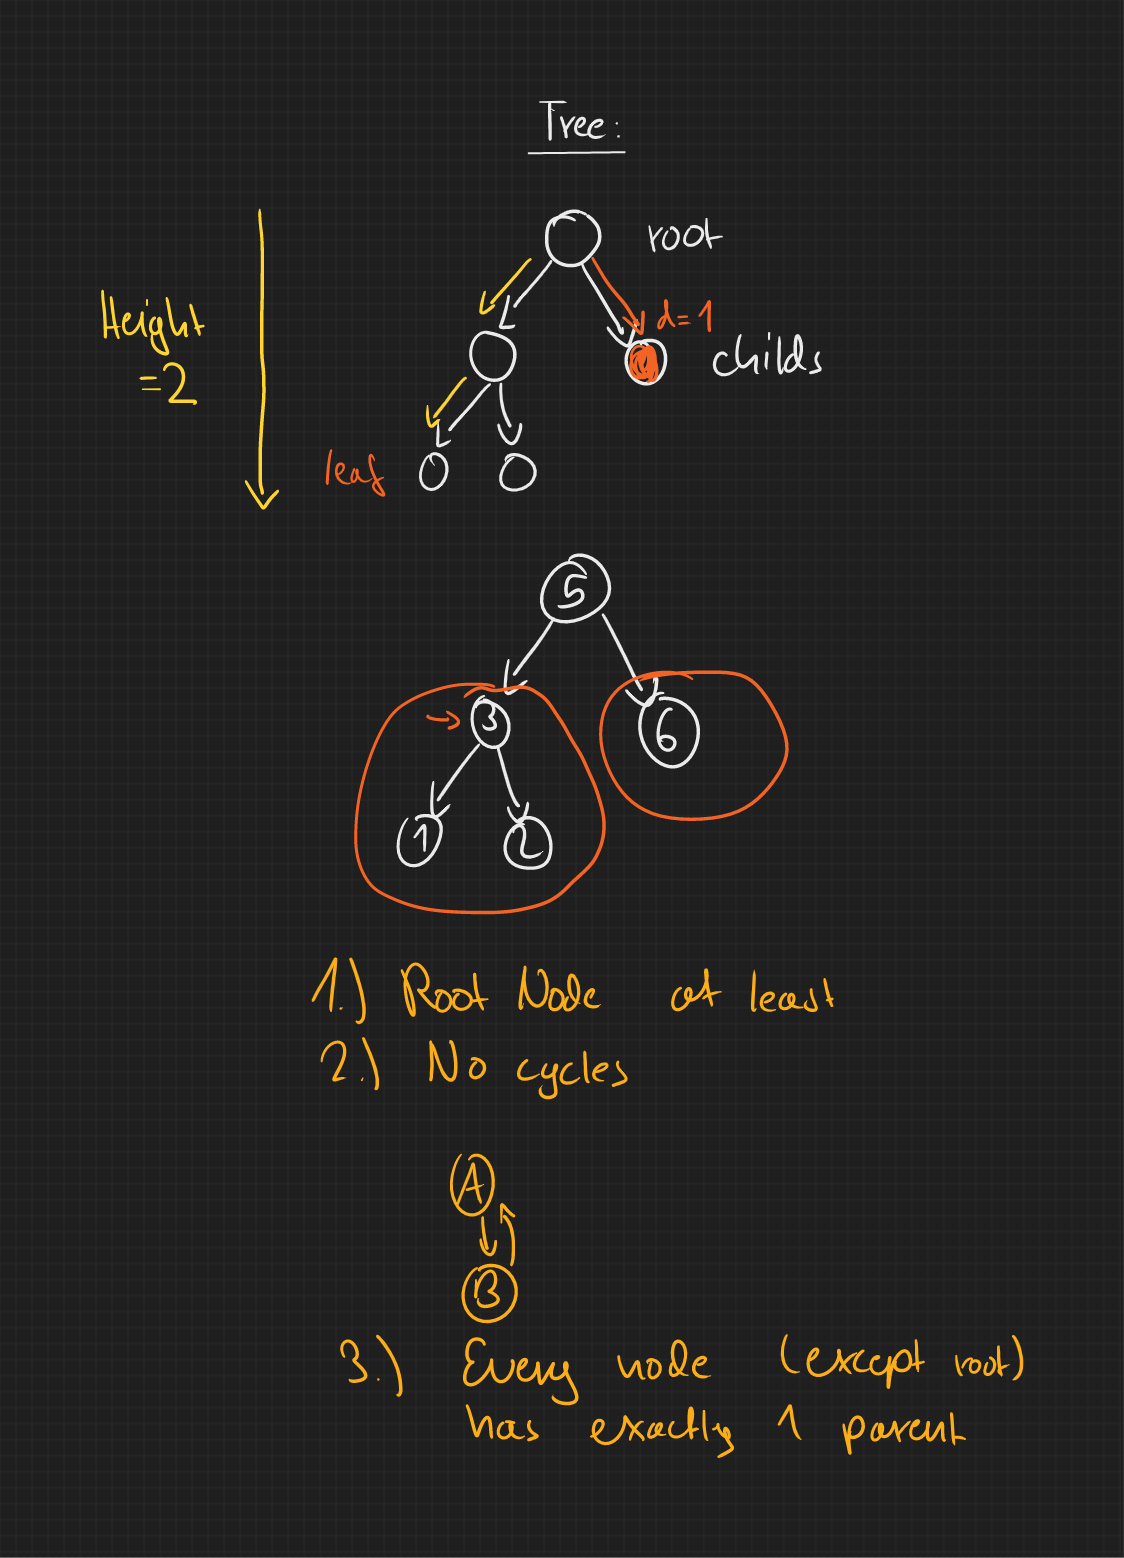 Tree:
root
Height
=2
d=1
childs
leaf
5
3
6
1
2
1.) Root Node at least
2.) No cycles
A
B
3.) Every node (except root)
has exactly 1 parent